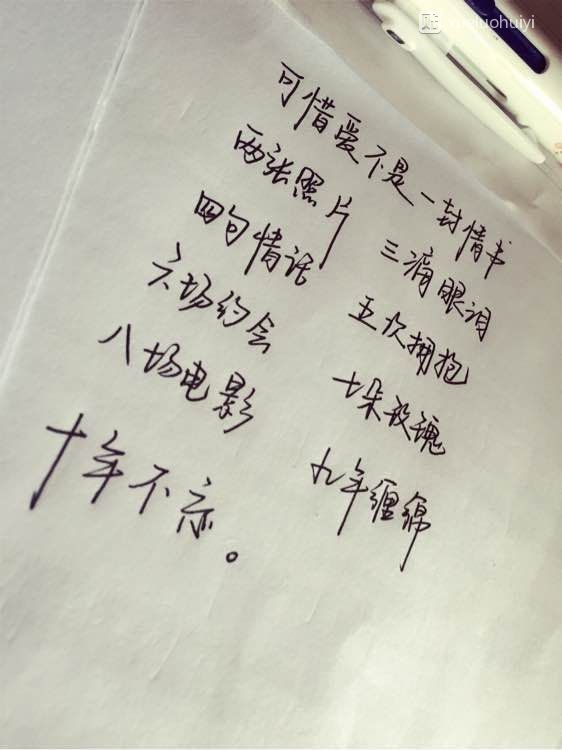 可惜爱不是一封情书
两张照片 三滴眼泪
四句情话 五次拥抱
六场约会 七朵玫瑰
八场电影 九年缠绵
十年不忘。